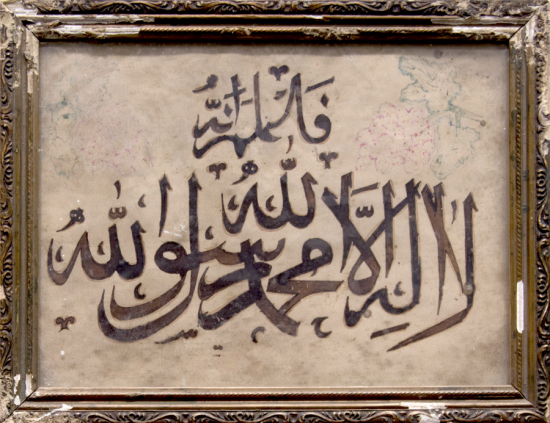 فاعلم انه
لا اله الا الله محمد رسول الله